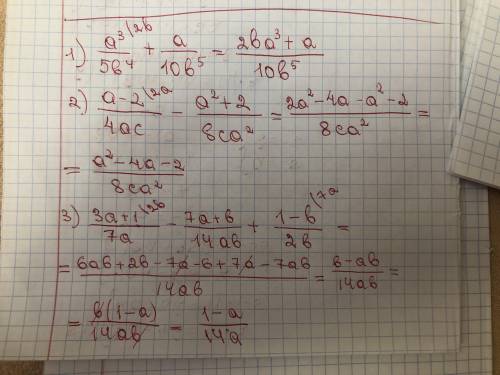 1) a³/5b⁴ \2b + a/10b⁵ = 2ba³ + a/10b⁵
2) a-2/4ac \2a - a²+2/8ca² = 2a²-4a-a²-2/8ca² =
= a²-4a-2/8ca²
3) 3a+1/7a \2b - 7a+b/14ab + 1-b/2b \7a =
= 6ab+2b-7a-b+7a-7ab/14ab = b-ab/14ab =
= b(1-a)/14ab = 1-a/14a